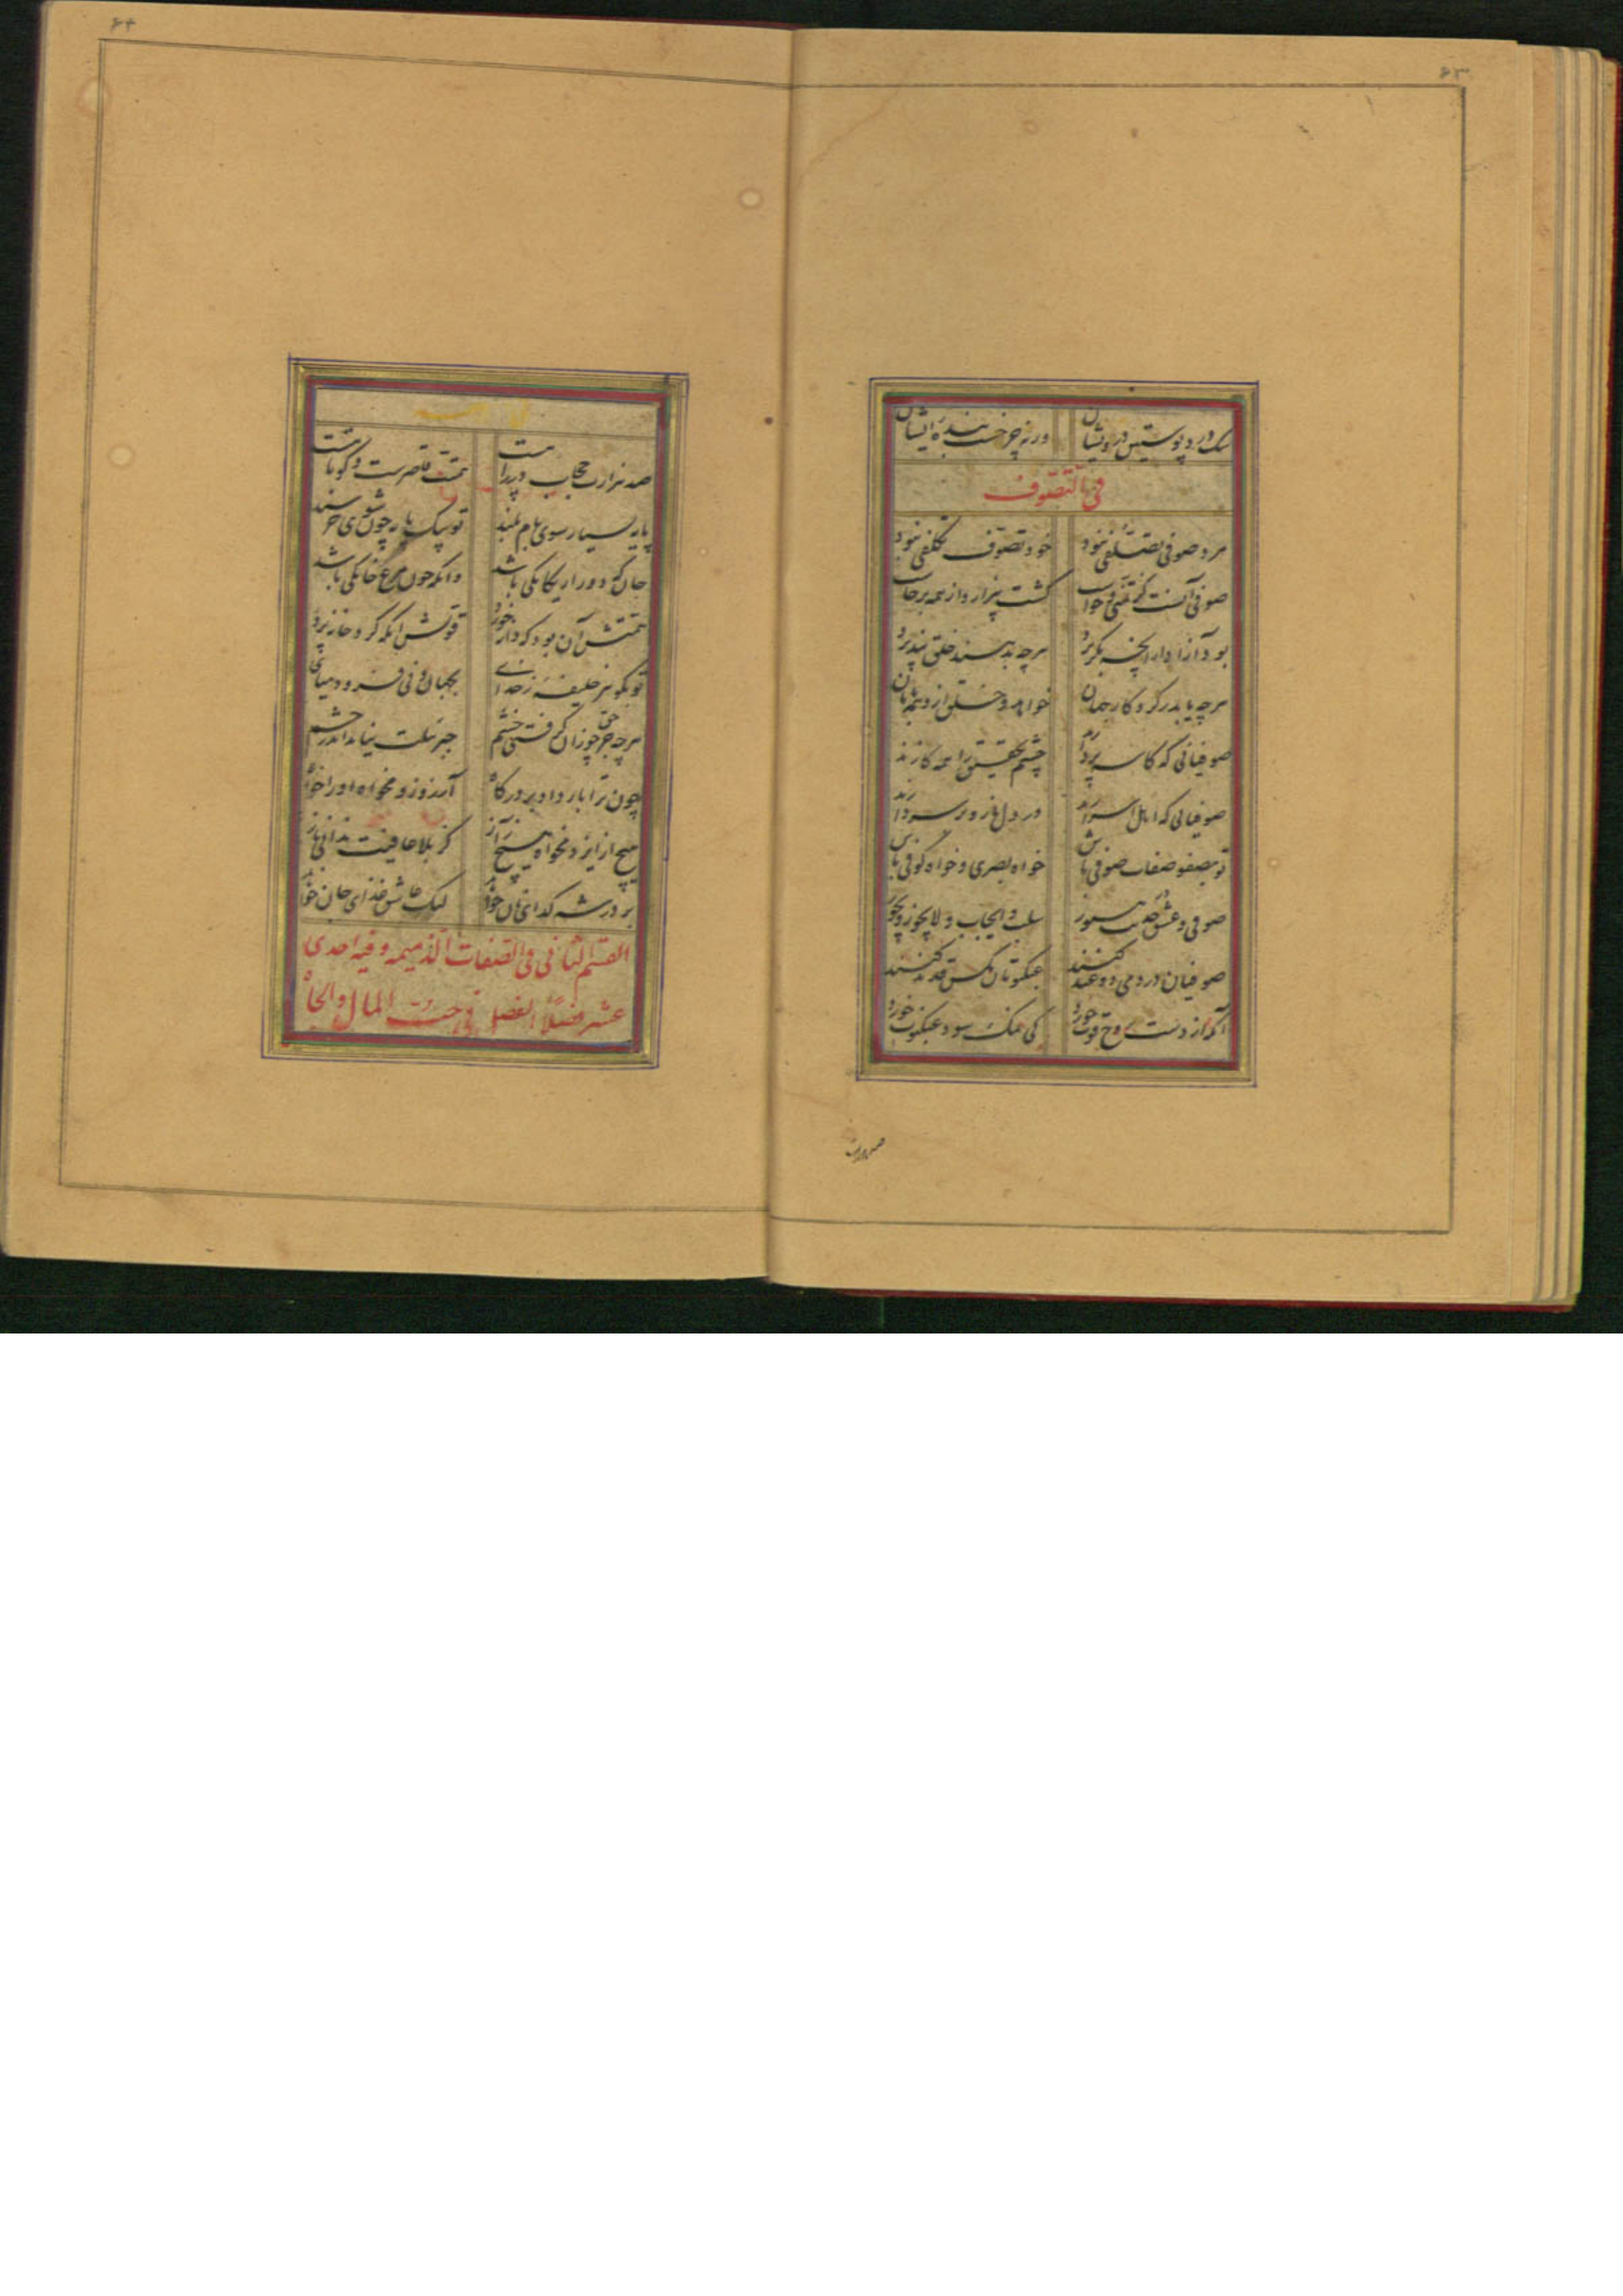 ۶۳
سک درد پوستین درویشان ورنه چرخست بنده ایشان
فی التصوف
مرد صوفی تصلفی نبود خود تصوف تکلفی نبود
صوفی آنست کز تمنی و خواست کشت بیزار و از همه برخاست
بود آزاد ازانچه بکریزد هرچه بدهند خلق بپذیرد
هرچه یابد ز کردکار جهان خواهد و خلق ازو بجهان
صوفیانی که کاسه پردازند چشم تحقیق را همه کازند
صوفیانی که اهل اسرارند در دل نار و بر سر دارند
تو بصف صفات صوفی باش خواه بصری و خواه کوفی باش
صوفی و عشق و حدیث هنوز سلب و ایجاب و لایجوز و یجوز
صوفیان در دمی دو عید کنند عنکبوتان مکس قدید کنند
آنکه از دست روح قوت خورد کی نمک سود عنکبوت خورد
صد هزارت
۶۴
صد هزارت حجاب در راهست همتت قاصرست و کوتاهست
پایه بسیار سوی بام بلند تو بیک پایه چون شوی خرسند
جان که دور از یکانکی باشد دانکه چون مرغ خانکی باشد
همتش آن بود که دانه خورد قوتش آنکه کرد خانه پرد
تو بکوهر خلیفه ز خدای بجهان فنی فرود میای
هرچه جز حق چو زان کرفتی خشم جبرئیلت نیاید اندر چشم
چون ترا بار داد بر درکاه آرزو زو مخواه او را خواه
هیچ از ایزد مخواه هیچ از آز کز بلا عافیت ندانی باز
بر در شه کدای نان خواهد لیک عاشق غذای جان خواهد
القسم الثانی فی الصفات الذمیمه و فیه احدی
عشر فصلا الفصل فی حب المال و الجاه